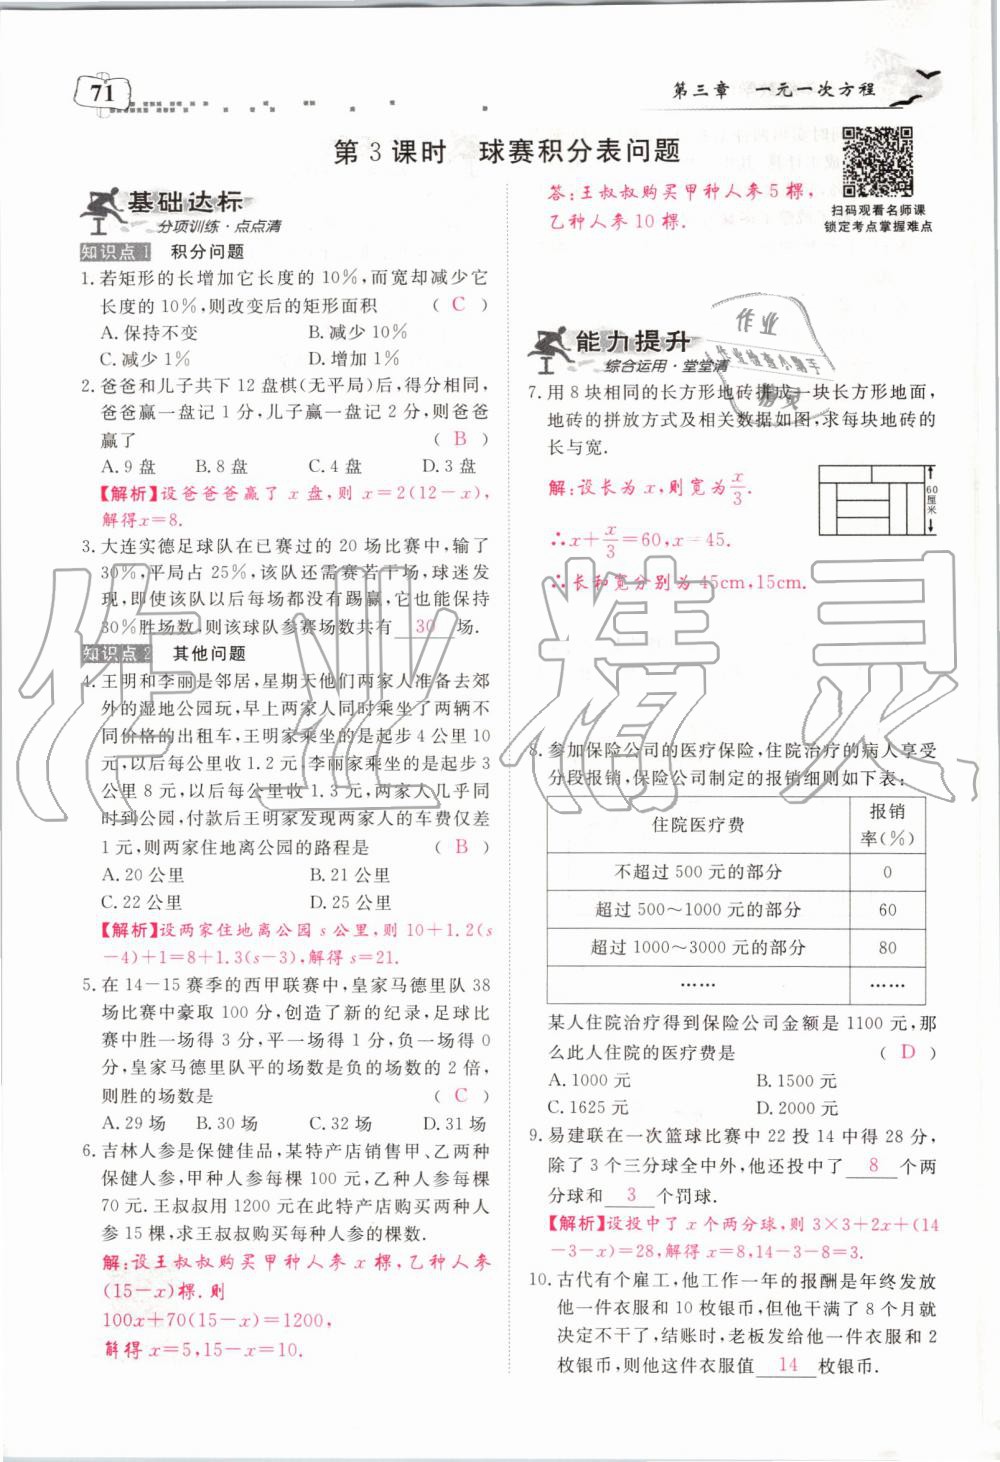 71
第三章　一元一次方程
第 3 课时　球赛积分表问题
基础达标
分项训练·点点清
知识点 1　积分问题
1. 若矩形的长增加它长度的 10%，而宽却减少它
长度的 10%，则改变后的矩形面积　（ C ）
A. 保持不变　B. 减少 10%
C. 减少 1%　D. 增加 1%
2. 爸爸和儿子共下 12 盘棋(无平局)后，得分相同，
爸爸赢一盘记 1 分，儿子赢一盘记 2 分，则爸爸
赢了　（ B ）
A. 9 盘　B. 8 盘　C. 4 盘　D. 3 盘
【解析】设爸爸赢了 x 盘，则 x=2(12-x)，
解得x=8.
3. 大连实德足球队在已赛过的 20 场比赛中，输了
30%，平局占 25%，该队还需赛若干场，球迷发
现，即使该队以后每场都没有踢赢，它也能保持
30%胜场数，则该球队参赛场数共有 30 场.
知识点 2　其他问题
4. 王明和李丽是邻居，星期天他们两家人准备去郊
外的湿地公园玩，早上两家人同时乘坐了两辆不
同价格的出租车，王明家乘坐的是起步 4 公里 10
元，以后每公里收 1.2 元，李丽家乘坐的是起步 3
公里 8 元，以后每公里收 1.3 元，两家人几乎同
时到达，付款后王明家发现两家人的车费仅差
1 元，则两家住地离公园的路程是　（ B ）
A. 20 公里　B. 21 公里
C. 22 公里　D. 25 公里
【解析】设两家住地离公园 s 公里，则 10+1.2(s
-4)+1=8+1.3(s-3)，解得 s=21.
5. 在 14-15 赛季的西甲联赛中，皇家马德里队 38
场比赛中豪取 100 分，创造了新的纪录，足球比
赛中胜一场得 3 分，平一场得 1 分，负一场得 0
分，皇家马德里队平的场数是负的场数的 2 倍，
则胜的场数是　（ C ）
A. 29 场　B. 30 场　C. 32 场　D. 31 场
6. 吉林人参是保健佳品，某特产店销售甲、乙两种
保健人参，甲种人参每棵 100 元，乙种人参每棵
70 元. 王叔叔用 1200 元在此特产店购买两种人
参 15 棵，求王叔叔购买每种人参的棵数.
解：设王叔叔购买甲种人参 x 棵，乙种人参
(15-x)棵. 则
100x+70(15-x)=1200，
解得 x=5，15-x=10.
答：王叔叔购买甲种人参 5 棵，
乙种人参 10 棵.
扫码观看名师课
锁定考点掌握难点
能力提升
综合运用·堂堂清
7. 用 8 块相同的长方形地砖拼成一块长方形地面，
地砖的拼放方式及相关数据如图，求每块地砖的
长与宽.
解：设长为 x，则宽为x/3.
∴x+x/3=60，x=45.
∴长和宽分别为 45cm，15cm.
60厘米
8. 参加保险公司的医疗保险，住院治疗的病人享受
分段报销，保险公司制定的报销细则如下表：
住院医疗费　报销率(%)
不超过 500 元的部分　0
超过 500～1000 元的部分　60
超过 1000～3000 元的部分　80
……　……
某人住院治疗得到保险公司金额是 1100 元，那
么此人住院的医疗费是　（ D ）
A. 1000 元　B. 1500 元
C. 1625 元　D. 2000 元
9. 易建联在一次篮球比赛中 22 投 14 中得 28 分，
除了 3 个三分球全中外，他还投中了 8 个两
分球和 3 个罚球.
【解析】设投中了 x 个两分球，则 3×3+2x+(14
-3-x)=28，解得 x=8，14-3-8=3.
10. 古代有个雇工，他工作一年的报酬是年终发放
他一件衣服和 10 枚银币，但他干满了 8 个月就
决定不干了，结账时，老板发给他一件衣服和 2
枚银币，则他这件衣服值 14 枚银币.
作业精灵
作业
作业检查小帮手
精灵